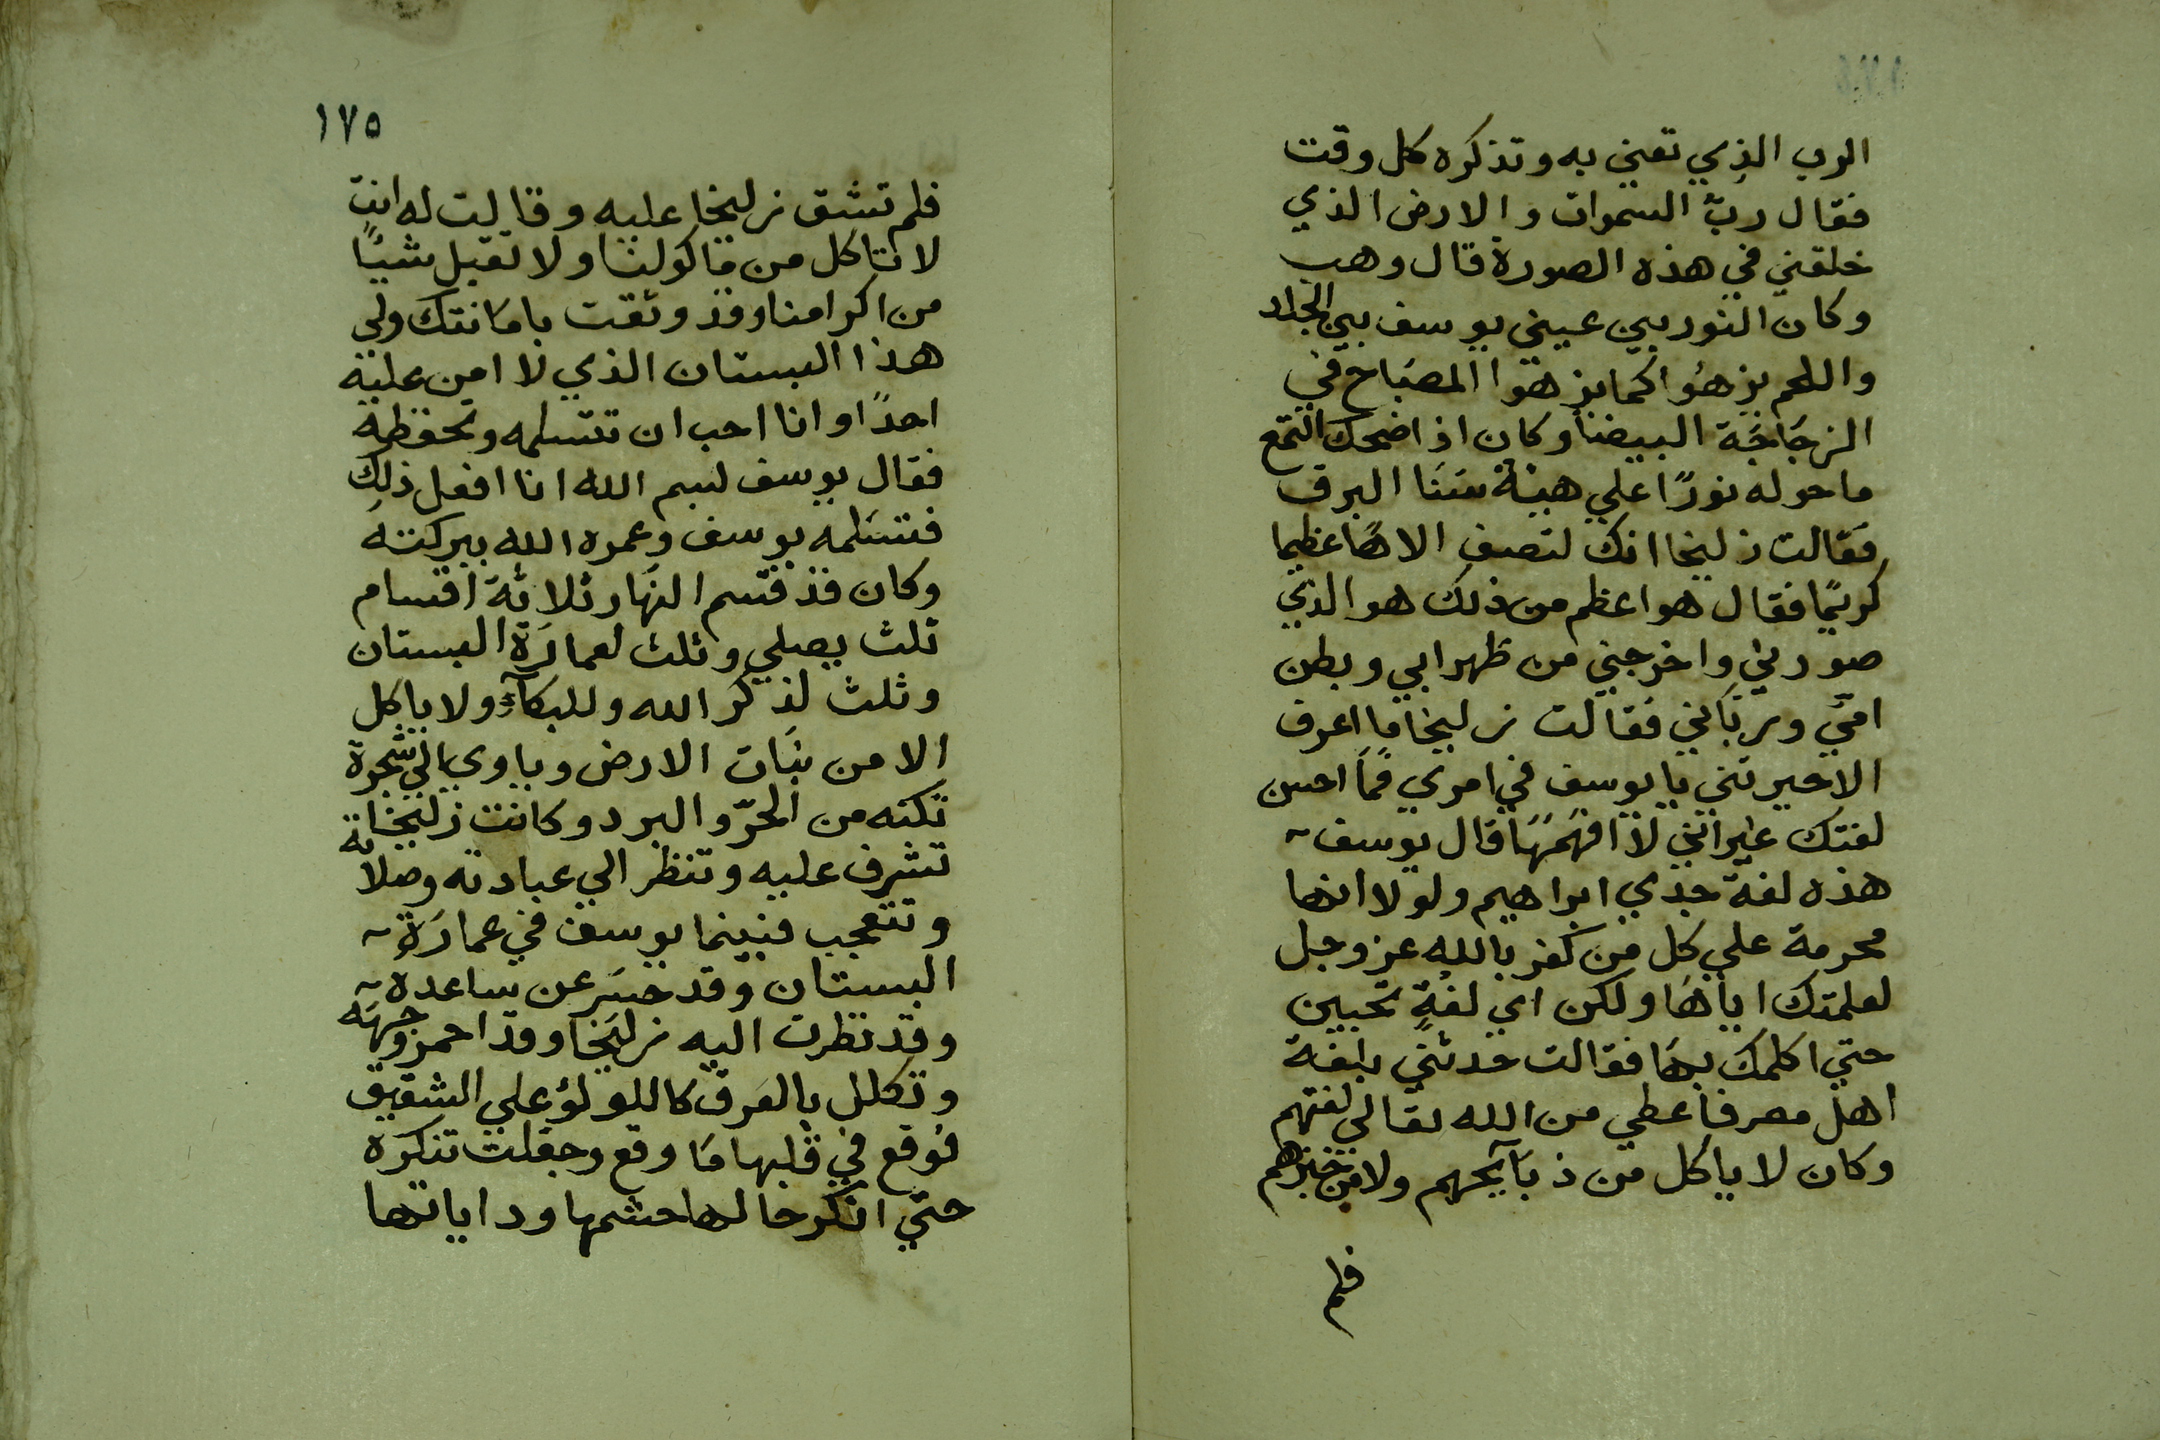 الرب الذي تعني به وتذكره كل وقت
فقال ربّ السموات والارض الذي
خلقني في هذه الصورة قال وهب
وكان النور بين عيني يوسف بين الجلد
واللحم يزهوا كما يزهوا المصباح في
الزجاجة البيضا وكان اذا ضحك التمع
ما حوله نورًا علي هيئة سنا البرق
فقالت زليخا انك لتصف الاهًا عظيما
كريمًا فقال هو اعظم من ذلك هو الذي
صورني واخرجني من ظهر ابي وبطن
امي ورباني فقالت زليخا ما اعرف
الاخيرتني يا يوسف في امري فما احسن
لغتك غير انني لا افهمها قال يوسف
هذه لغة جدي ابراهيم ولولا انها
محرمة علي كل من كفر بالله عز وجل
لعلمتك اياها ولكن اي لغةٍ تحبين
حتي اكلمك بها فقالت حدثني بلغة
اهل مصر فاعطي من الله تعالي لغتهم
وكان لا ياكل من ذبآيحهم ولا من خبزهم
فلم
١٧٥
فلم تشق زليخا عليه وقالت له انت
لا تاكل من ماكولنا ولا تقبل شيئًا
من اكرامنا وقد وثقت بامانتك ولي
هذا البستان الذي لا امن عليه
احدًا وانا احب ان تتسلمه وتحفظه
فقال يوسف لبسم الله انا افعل ذلك
فتسلمه يوسف وعمره الله ببركته
وكان قد قسم النهار ثلاثة اقسام
ثلث يصلي وثلث لعمارة البستان
وثلث لذكر الله وللبكآء ولا ياكل
الا من نبات الارض وياوي الي شجرة
تكنه من الحرّ والبرد وكانت زليخا
تشرف عليه وتنظر الي عبادته وصلاته
وتتعجب فبينما يوسف في عمارة
البستان وقد حسر عن ساعده
وقد نظرت اليه زليخا وقد احمر وجهه
وتكلل بالعرق كاللولؤ علي الشقيق
فوقع في قلبها ما وقع وجعلت تذكره
حتي انكر حالها حشمها وداياتها